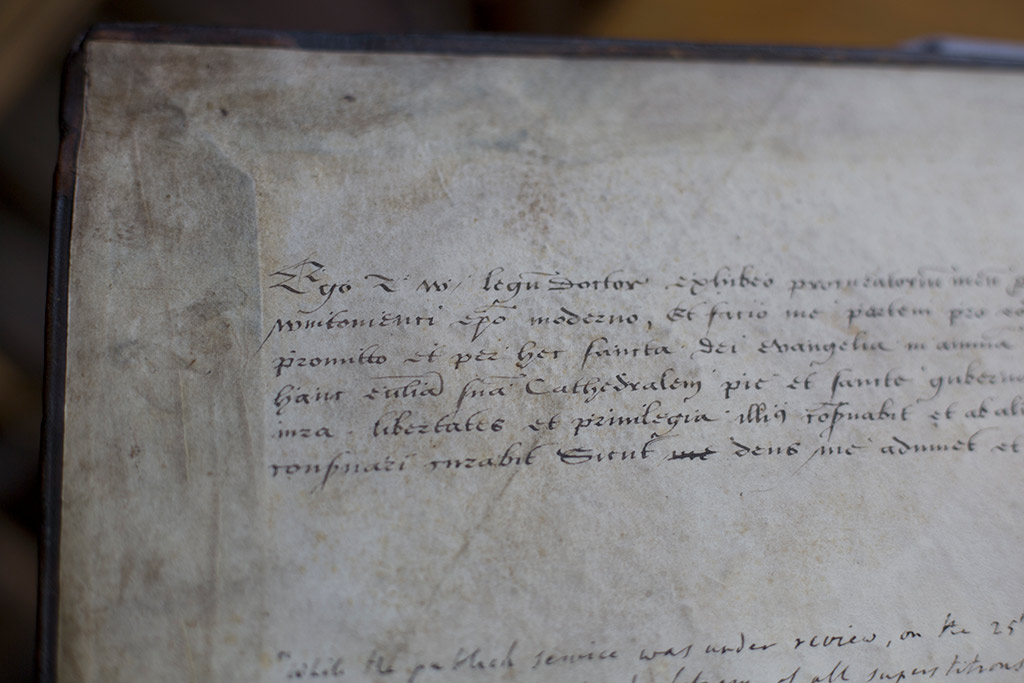 Ego T w legū doctor exhibeo procuratoriū meū
wintonienci ep̄o moderno, Et facio me partem pro
promitto et per hec sancta dei evangelia in anima
hanc ecc̄liā suā Cathedralem pie et sancte guberna
iura libertates et privilegia illiꝯ cōs̄uabit et ab ali
consuari curabit Sicut deus me adiuvet et
"While the publick service was under review, on the 25
of all superstitious